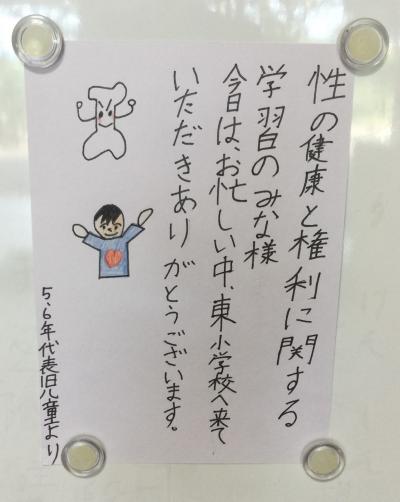 性の健康と権利に関する
学習のみな様
今日は、お忙しい中、東小学校へ来て
いただきありがとうございます。
5、6年代表児童より